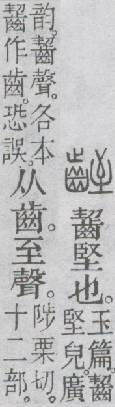 齧堅也。玉篇。齧堅皃。廣
韵。齧聲。各本齧作齒。恐誤。从齒。至聲。陟栗切。十二部。